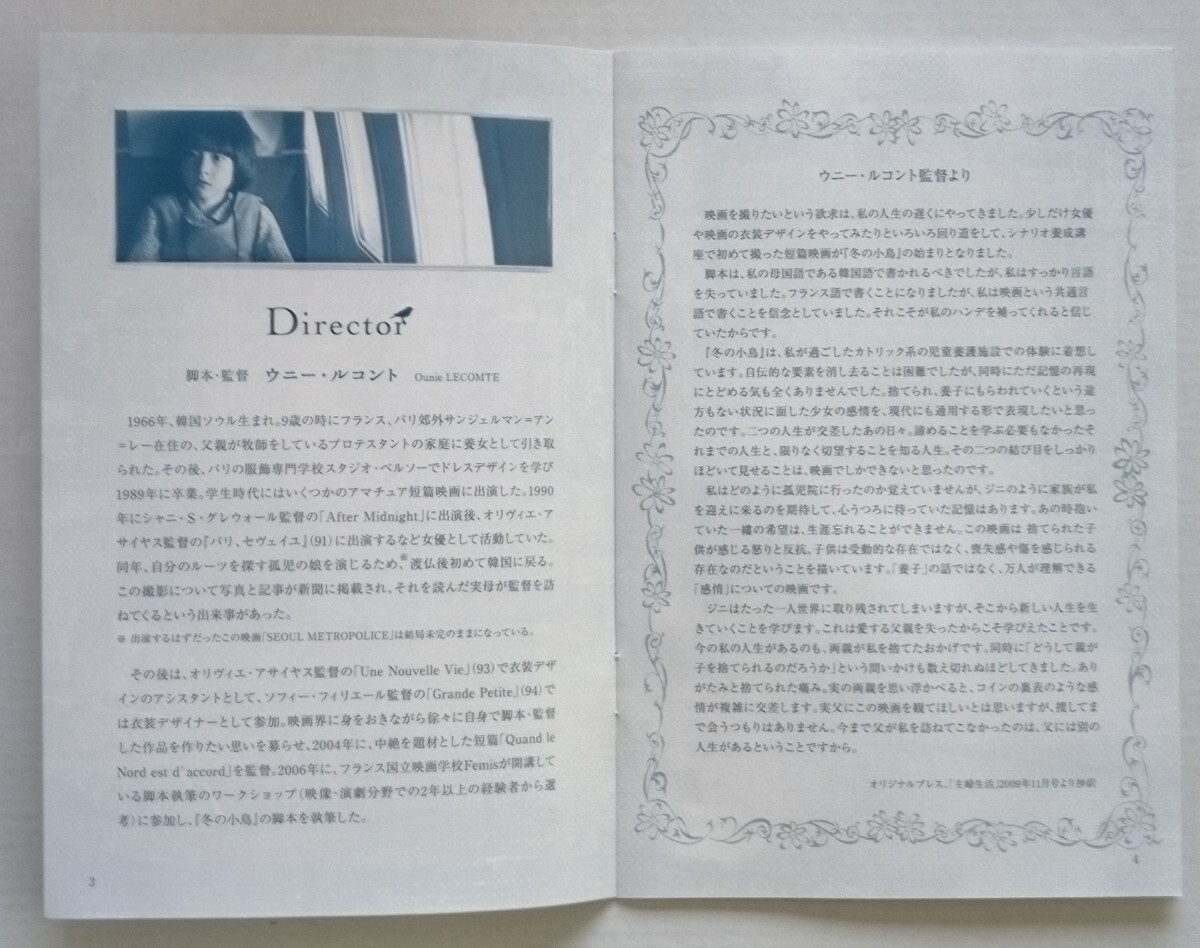 Director
脚本・監督 ウニー・ルコント Ounie LECOMTE
1966年、韓国ソウル生まれ。9歳の時にフランス、パリ郊外サンジェルマン=アン
=レー在住の、父親が牧師をしているプロテスタントの家庭に養女として引き取
られた。その後、パリの服飾専門学校スタジオ・ベルソーでドレスデザインを学び
1989年に卒業。学生時代にはいくつかのアマチュア短篇映画に出演した。1990
年にシャニ・S・グレウォール監督の「After Midnight」に出演後、オリヴィエ・ア
サイヤス監督の『パリ、セヴェイユ』(91)に出演するなど女優として活動していた。
同年、自分のルーツを探す孤児の娘を演じるため、※渡仏後初めて韓国に戻る。
この撮影について写真と記事が新聞に掲載され、それを読んだ実母が監督を訪
ねてくるという出来事があった。
※ 出演するはずだったこの映画「SEOUL METROPOLICE」は結局未完のままになっている。
その後は、オリヴィエ・アサイヤス監督の「Une Nouvelle Vie」(93)で衣装デザ
インのアシスタントとして、ソフィー・フィリエール監督の「Grande Petite」(94)で
は衣装デザイナーとして参加。映画界に身をおきながら徐々に自身で脚本・監督
した作品を作りたい思いを募らせ、2004年に、中絶を題材とした短篇「Quand le
Nord est d`accord」を監督。2006年に、フランス国立映画学校Femisが開講して
いる脚本執筆のワークショップ(映像・演劇分野での2年以上の経験者から選
考)に参加し、『冬の小鳥』の脚本を執筆した。
3
ウニー・ルコント監督より
映画を撮りたいという欲求は、私の人生の遅くにやってきました。少しだけ女優
や映画の衣装デザインをやってみたりといろいろ回り道をして、シナリオ養成講
座で初めて撮った短篇映画が『冬の小鳥』の始まりとなりました。
脚本は、私の母国語である韓国語で書かれるべきでしたが、私はすっかり言語
を失っていました。フランス語で書くことになりましたが、私は映画という共通言
語で書くことを信念としていました。それこそが私のハンデを補ってくれると信じ
ていたからです。
『冬の小鳥』は、私が過ごしたカトリック系の児童養護施設での体験に着想し
ています。自伝的な要素を消し去ることは困難でしたが、同時にただ記憶の再現
にとどめる気も全くありませんでした。捨てられ、養子にもらわれていくという途
方もない状況に面した少女の感情を、現代にも通用する形で表現したいと思っ
たのです。二つの人生が交差したあの日々。諦めることを学ぶ必要もなかったそ
れまでの人生と、限りなく切望することを知る人生。その二つの結び目をしっかり
ほどいて見せることは、映画でしかできないと思ったのです。
私はどのように孤児院に行ったのか覚えていませんが、ジニのように家族が私
を迎えに来るのを期待して、心うつろに待っていた記憶はあります。あの時抱い
ていた一縷の希望は、生涯忘れることができません。この映画は 捨てられた子
供が感じる怒りと反抗、子供は受動的な存在ではなく、喪失感や傷を感じられる
存在なのだということを描いています。「養子」の話ではなく、万人が理解できる
「感情」についての映画です。
ジニはたった一人世界に取り残されてしまいますが、そこから新しい人生を生
きていくことを学びます。これは愛する父親を失ったからこそ学びえたことです。
今の私の人生があるのも、両親が私を捨てたおかげです。同時に「どうして親が
子を捨てられるのだろうか」という問いかけも数え切れぬほどしてきました。あり
がたみと捨てられた痛み。実の両親を思い浮かべると、コインの裏表のような感
情が複雑に交差します。実父にこの映画を観てほしいとは思いますが、捜してま
で会うつもりはありません。今まで父が私を訪ねてこなかったのは、父には別の
人生があるということですから。
オリジナルプレス、「主婦生活」2009年11月号より抄訳
4